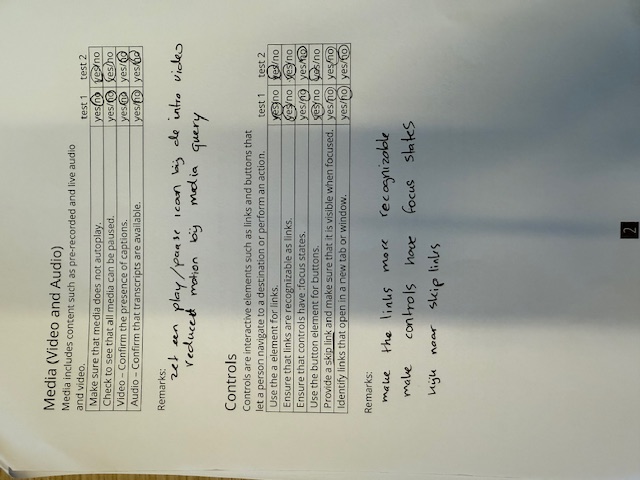 Media (Video and Audio)
Media includes content such as pre-recorded and live audio
and video.
test 1 test 2
Make sure that media does not autoplay. yes/no yes/no
Check to see that all media can be paused. yes/no yes/no
Video – Confirm the presence of captions. yes/no yes/no
Audio – Confirm that transcripts are available. yes/no yes/no
Remarks:
zet een play/pause icoon bij de intro video
reduced motion bij media query
Controls
Controls are interactive elements such as links and buttons that
let a person navigate to a destination or perform an action.
test 1 test 2
Use the a element for links. yes/no yes/no
Ensure that links are recognizable as links. yes/no yes/no
Ensure that controls have :focus states. yes/no yes/no
Use the button element for buttons. yes/no yes/no
Provide a skip link and make sure that it is visible when focused. yes/no yes/no
Identify links that open in a new tab or window. yes/no yes/no
Remarks:
make the links more recognizable
make controls have focus states
kijk naar skip links
2